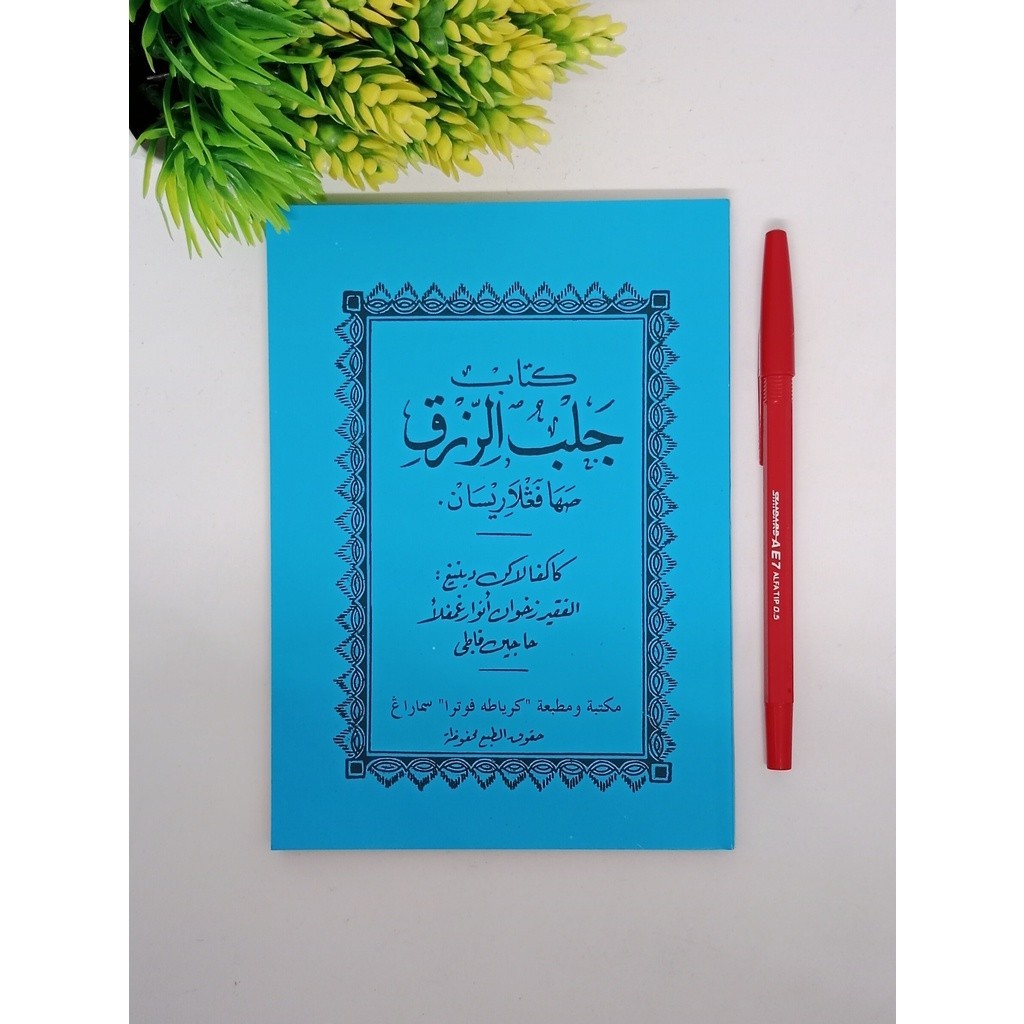 كتاب
جَلْبُ الرِّزْقِ
صَهَا فَڠْلَارِيْسَانْ.
كاكفالاكن دينيڠ :
الفقير زخوان أنوار غمفلأ
حاجين فاطى
مكتبة ومطبعة "كرياطه فوترا" سماراڠ
حقوق الطبع محفوظة
STANDARD AE7 ALFA TIP 0.5